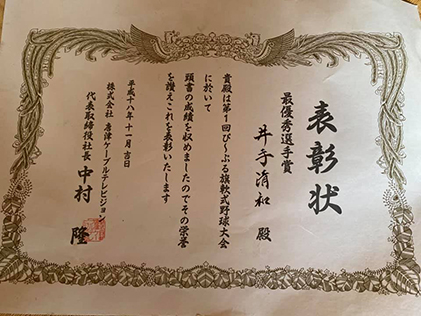 表彰状
最優秀選手賞
井手清和 殿
貴殿は第1回ぴ~ぷる旗軟式野球大会
に於いて
頭書の成績を収めましたのでその栄誉
を讃えこれを表彰いたします
平成十八年十一月吉日
株式会社 唐津ケーブルテレビジョン
代表取締役社長 中村 隆